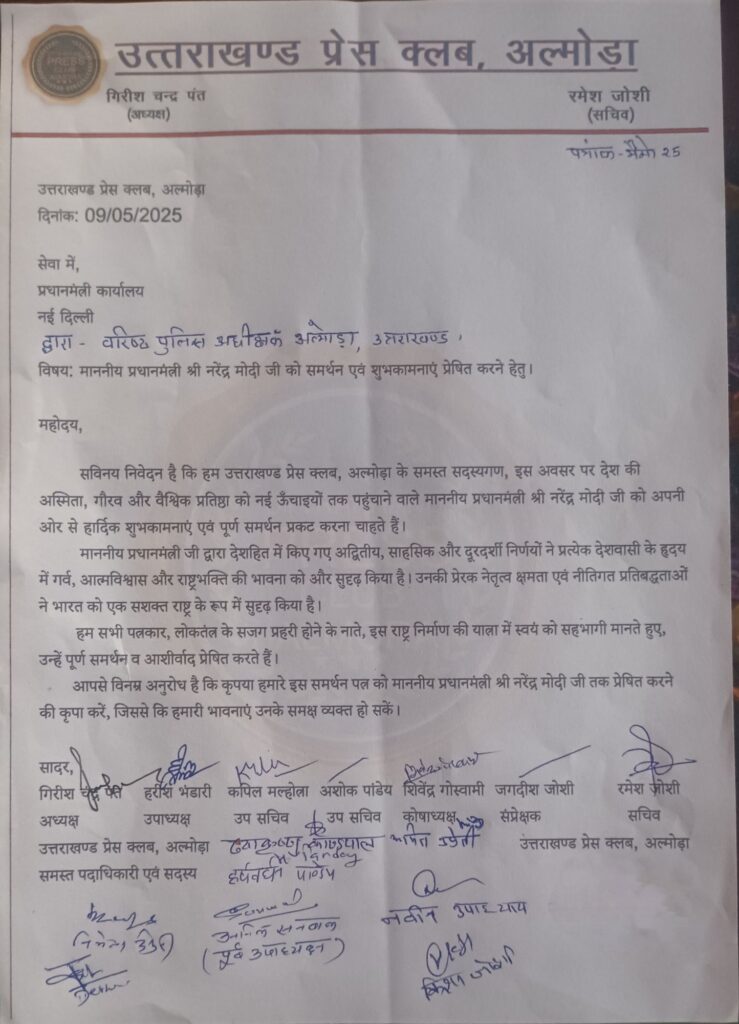 PRESS
उत्तराखण्ड प्रेस क्लब, अल्मोड़ा
गिरीश चन्द्र पंत
(अध्यक्ष)
रमेश जोशी
(सचिव)
पत्रांक - मैमो 25
उत्तराखण्ड प्रेस क्लब, अल्मोड़ा
दिनांक: 09/05/2025
सेवा में,
प्रधानमंत्री कार्यालय
नई दिल्ली
द्वारा - वरिष्ठ पुलिस अधीक्षक अल्मोड़ा, उत्तराखण्ड ।
विषय: माननीय प्रधानमंत्री श्री नरेंद्र मोदी जी को समर्थन एवं शुभकामनाएं प्रेषित करने हेतु।
महोदय,
सविनय निवेदन है कि हम उत्तराखण्ड प्रेस क्लब, अल्मोड़ा के समस्त सदस्यगण, इस अवसर पर देश की
अस्मिता, गौरव और वैश्विक प्रतिष्ठा को नई ऊँचाइयों तक पहुंचाने वाले माननीय प्रधानमंत्री श्री नरेंद्र मोदी जी को अपनी
ओर से हार्दिक शुभकामनाएं एवं पूर्ण समर्थन प्रकट करना चाहते हैं।
माननीय प्रधानमंत्री जी द्वारा देशहित में किए गए अद्वितीय, साहसिक और दूरदर्शी निर्णयों ने प्रत्येक देशवासी के हृदय
में गर्व, आत्मविश्वास और राष्ट्रभक्ति की भावना को और सुदृढ़ किया है। उनकी प्रेरक नेतृत्व क्षमता एवं नीतिगत प्रतिबद्धताओं
ने भारत को एक सशक्त राष्ट्र के रूप में सुदृढ़ किया है।
हम सभी पत्रकार, लोकतंत्र के सजग प्रहरी होने के नाते, इस राष्ट्र निर्माण की यात्रा में स्वयं को सहभागी मानते हुए,
उन्हें पूर्ण समर्थन व आशीर्वाद प्रेषित करते हैं।
आपसे विनम्र अनुरोध है कि कृपया हमारे इस समर्थन पत्र को माननीय प्रधानमंत्री श्री नरेंद्र मोदी जी तक प्रेषित करने
की कृपा करें, जिससे कि हमारी भावनाएं उनके समक्ष व्यक्त हो सकें।
सादर,
गिरीश चंद्र पंत हरीश भंडारी कपिल मल्होत्रा अशोक पांडेय शिवेंद्र गोस्वामी जगदीश जोशी रमेश जोशी
अध्यक्ष उपाध्यक्ष उप सचिव उप सचिव कोषाध्यक्ष संप्रेक्षक सचिव
उत्तराखण्ड प्रेस क्लब, अल्मोड़ा उत्तराखण्ड प्रेस क्लब, अल्मोड़ा
समस्त पदाधिकारी एवं सदस्य पाण्डेय
नवीन उपाध्याय
(पूर्व उपाध्यक्ष)
जोशी